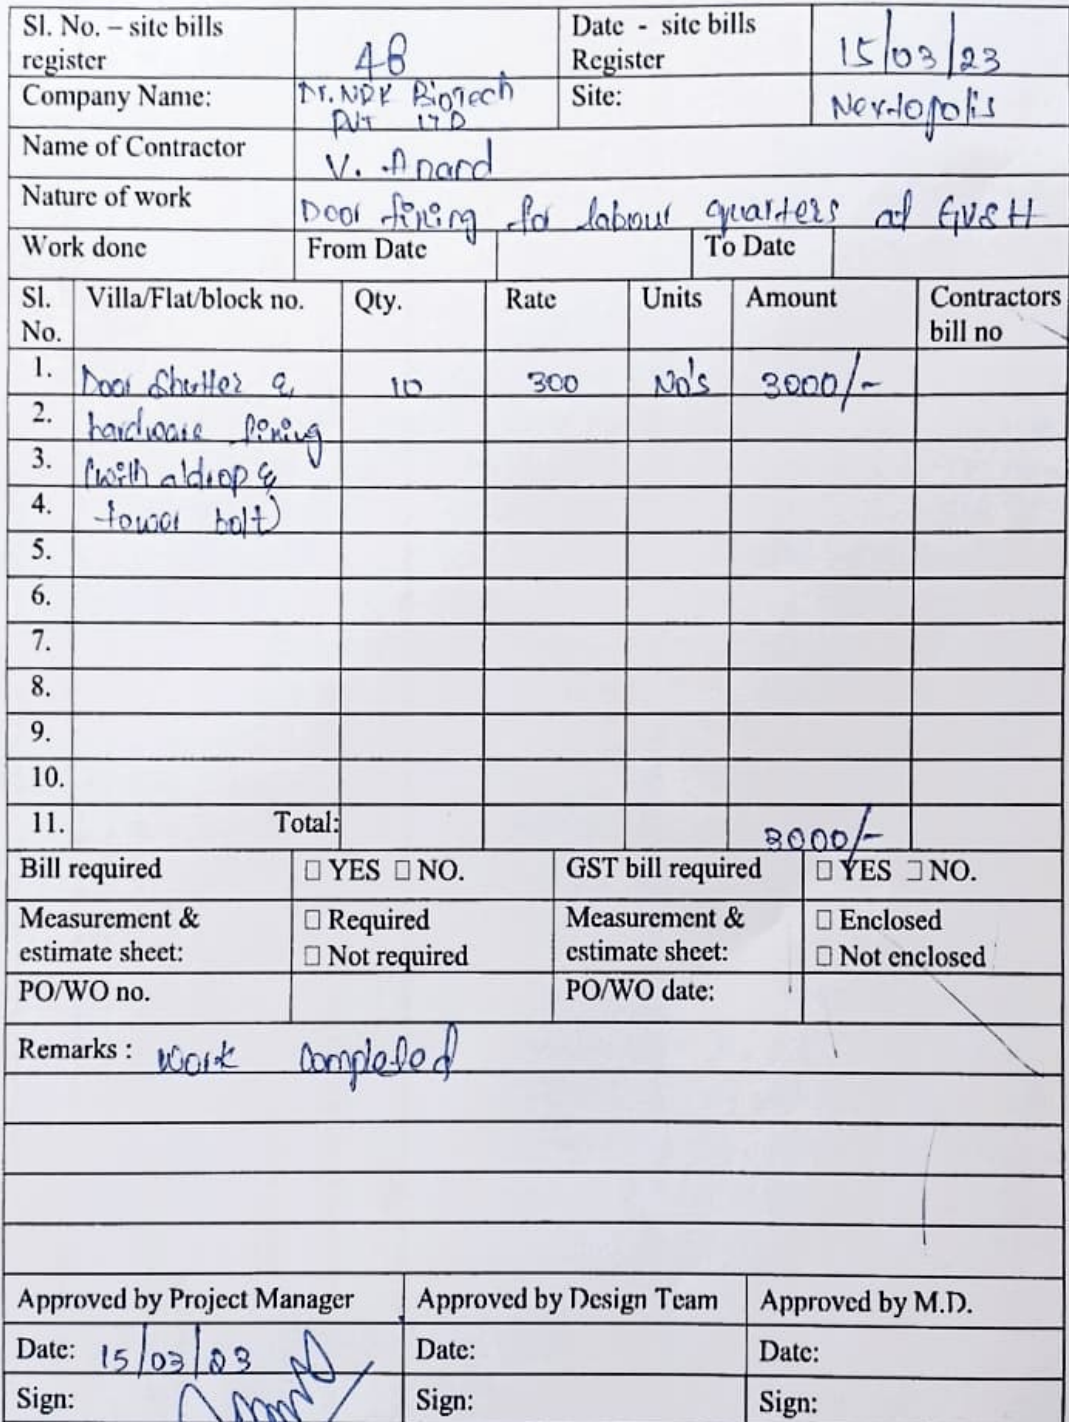 Sl. No. – site bills register 48 Date - site bills Register 15/03/23
Company Name: Dr. NDK Biotech Pvt Ltd Site: Nextopolis
Name of Contractor V. Anand
Nature of work Door fixing for labour quarters at GVSH
Work done From Date To Date
Sl. No. Villa/Flat/block no. Qty. Rate Units Amount Contractors bill no
1. Door Shutter & 10 300 No's 3000/-
2. hardware fixing
3. (with aldrop &
4. tower bolt)
5.
6.
7.
8.
9.
10.
11. Total: 3000/-
Bill required □ YES □ NO. GST bill required □ YES □ NO.
Measurement & estimate sheet: □ Required □ Not required Measurement & estimate sheet: □ Enclosed □ Not enclosed
PO/WO no. PO/WO date:
Remarks : work completed
Approved by Project Manager Approved by Design Team Approved by M.D.
Date: 15/03/23 Date: Date:
Sign: Sign: Sign: